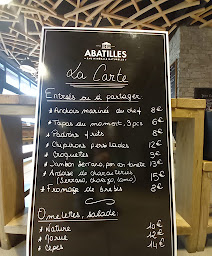 ABATILLES
La Carte
Entrées ou à partager:
* Anchois marinés du chef 8€
* Tapas du moment, 3 pcs 6€
* Padrons frits 8€
* Chipirons persillades 12€
* Croquettes 9€
* Jambon Serrano, pan con tomate 13€
* Ardoise de charcuteries 15€
(Serrano, chorizo, lomo)
* Fromage de brebis 8€
Omelettes, salade:
* Nature 10€
* Morue 12€
* Cèpes 14€